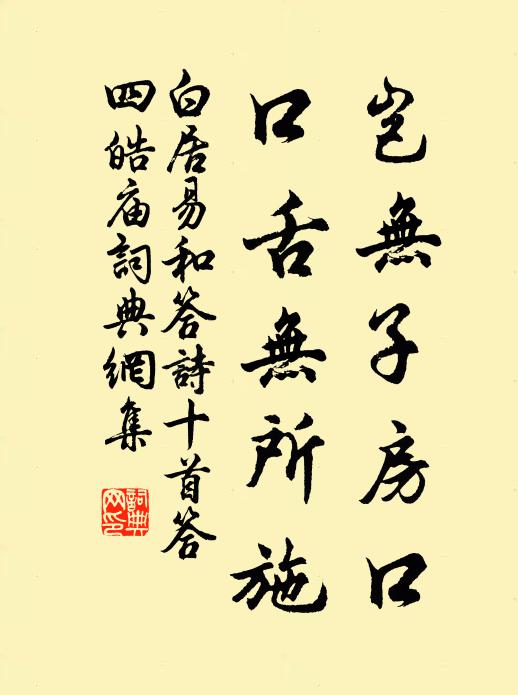 豈無子房口
口舌無所施
白居易和答詩十首答
四皓庙詞典網集
詞典
网印